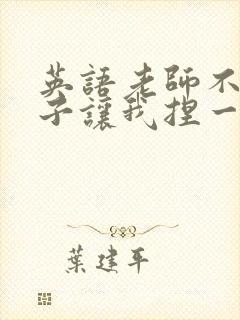 英語老師不
子讓我捏一
葉建平